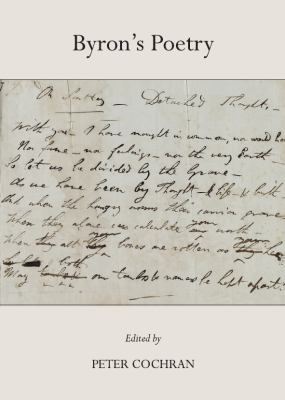 Byron's Poetry
On Southey — Detached Thoughts —
With you I have nought in common, nor would have
Nor fame — nor feelings — nor the very Earth
So let us be divided by the Grave —
As we have been by Thought — & life — & birth
And when the hungry worms their carrion crave
When they alone can calculate your worth —
When they all bones are rotten as
both
May our tombs & names be kept apart!
Edited by
PETER COCHRAN